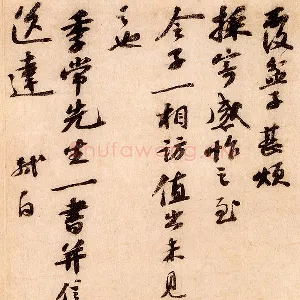 覆盆子甚烦
採寄感怍之至
令子一相访值出未见
之也
季常先生一书并信
送达 轼白
shufawu